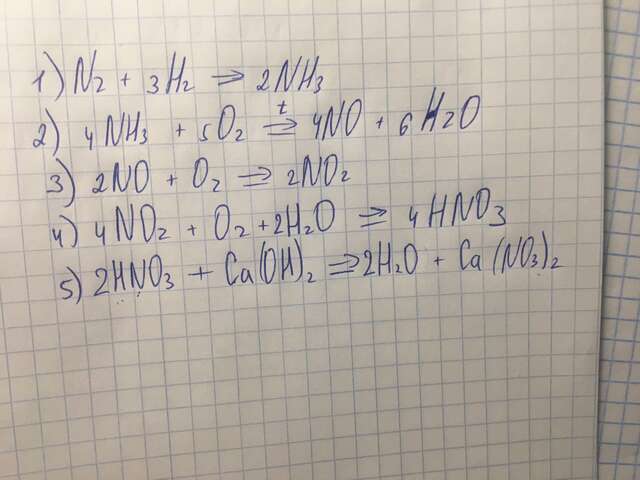 1) N2 + 3H2 ⇒ 2NH3
2) 4NH3 + 5O2 t⇒ 4NO + 6H2O
3) 2NO + O2 ⇒ 2NO2
4) 4NO2 + O2 + 2H2O ⇒ 4HNO3
5) 2HNO3 + Ca(OH)2 ⇒ 2H2O + Ca(NO3)2